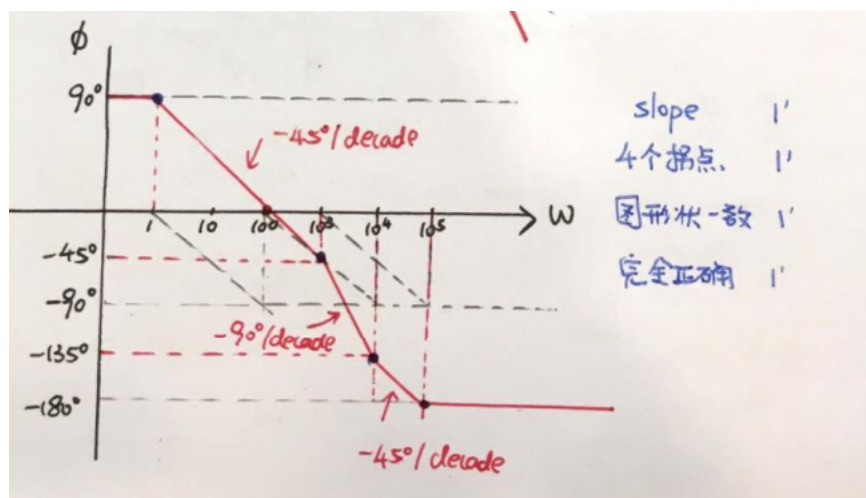 ϕ
90°
-45°/decade
1 10 100 10³ 10⁴ 10⁵ ω
-45°
-90°
-90°/decade
-135°
-180°
-45°/decade
slope 1'
4个拐点 1'
图形状一致 1'
完全正确 1'